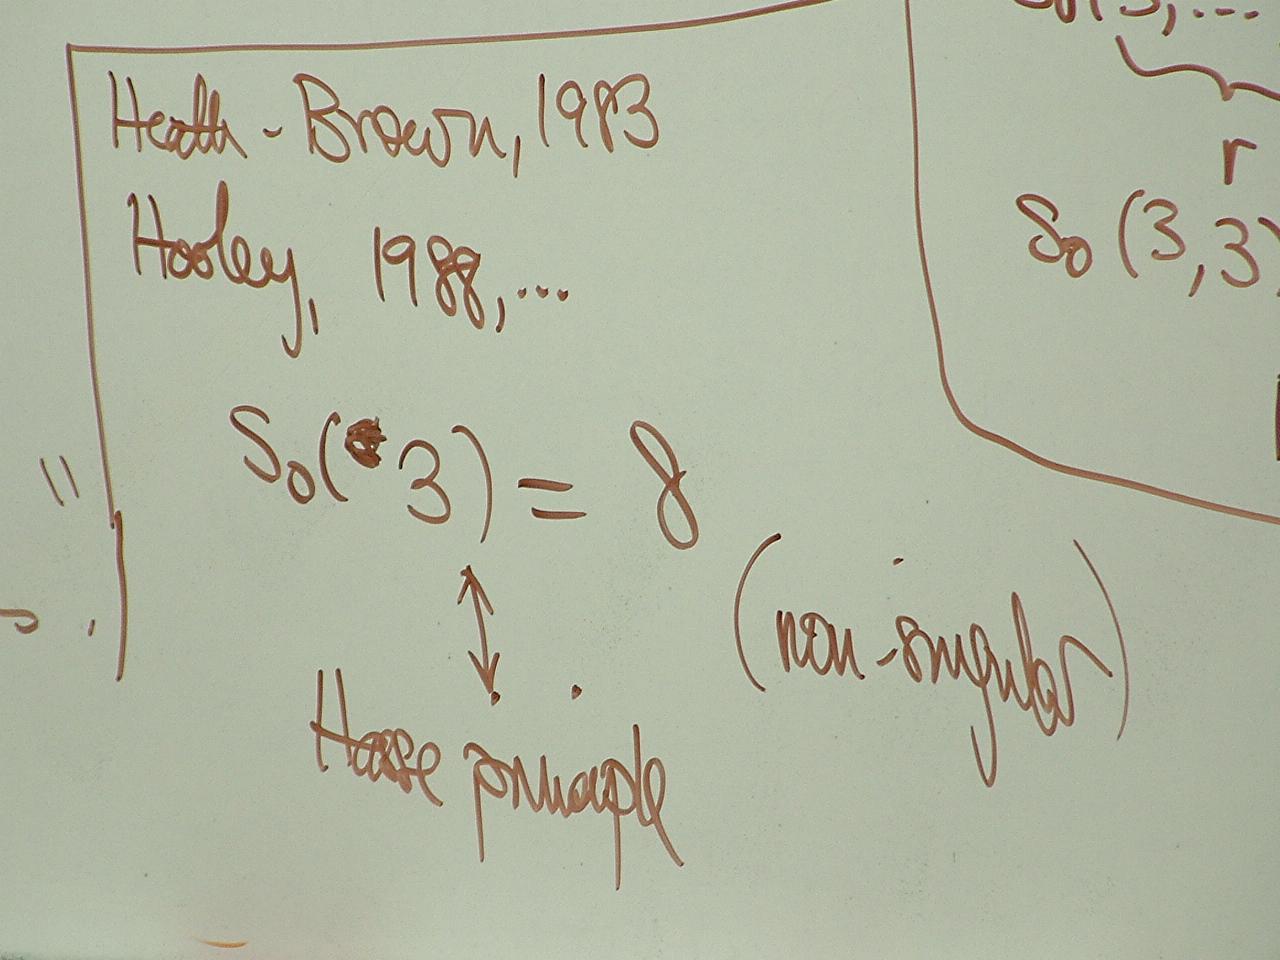 Heath-Brown, 1983
Hooley, 1988, ...
S₀(3) = 8
(non-singular)
Hasse principle
S₀(3, ...
r
S₀(3,3)